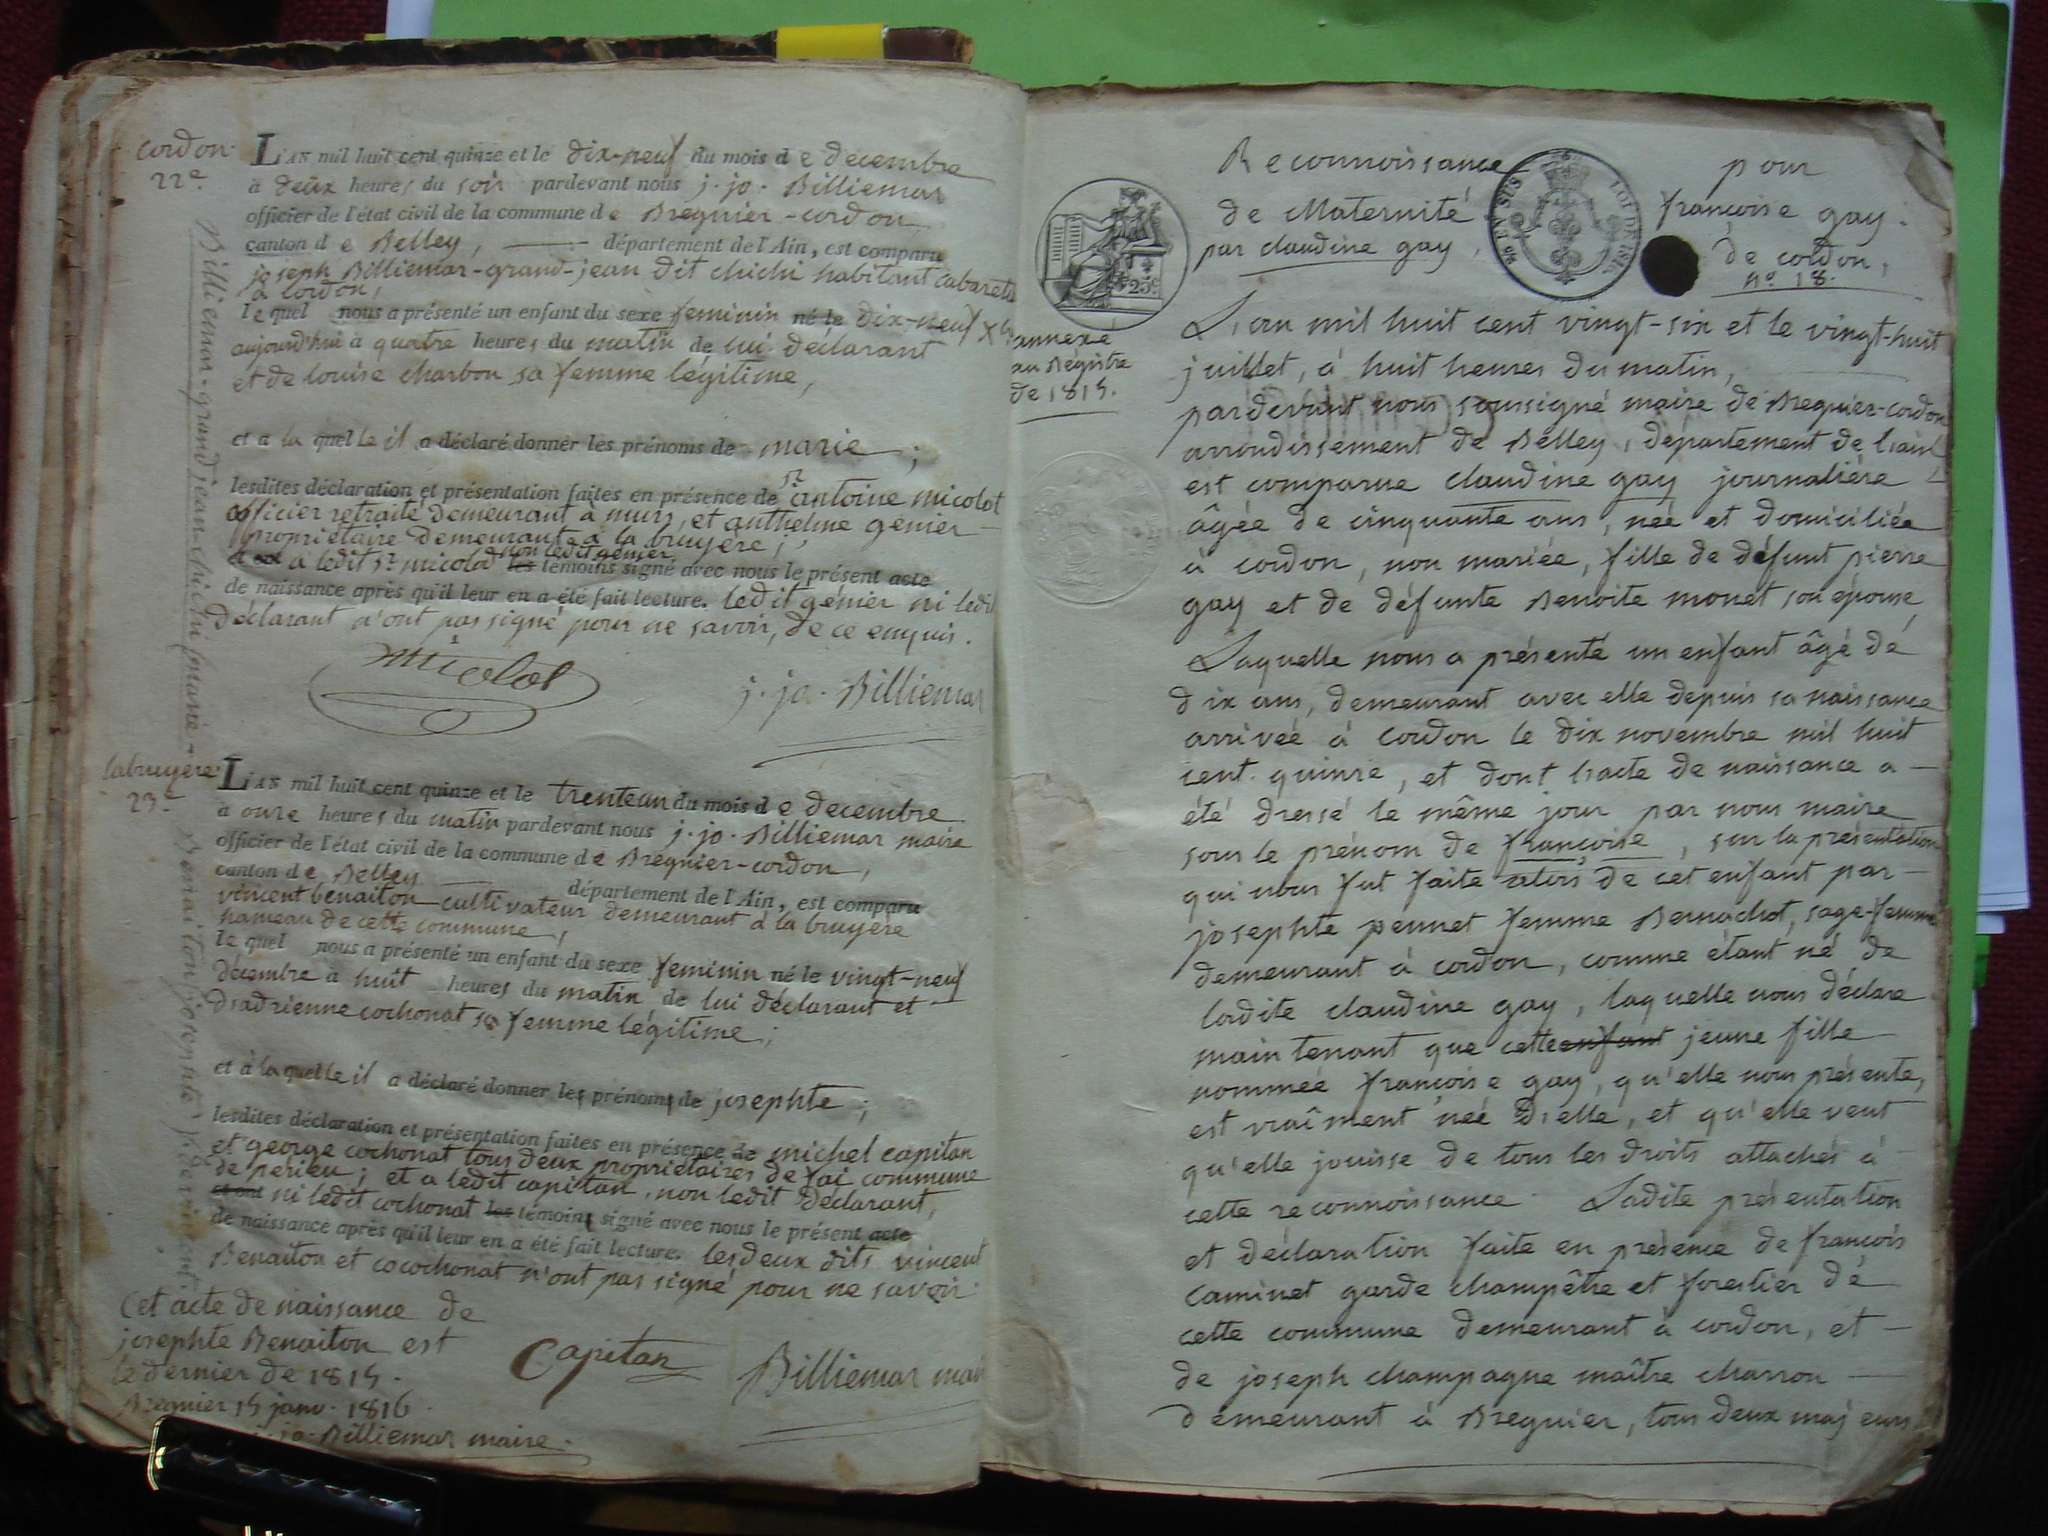 Cordon.
22e.
Billiemar-grand jean-chichi (marie-
L'AN mil huit cent quinze et le dix-neuf du mois de decembre
à deux heures du soir pardevant nous j. jo. Billiemar
officier de l'état civil de la commune de Bregnier-cordon,
canton de Belley, département de l'Ain, est comparu
joseph Billiemar-grand-jean dit chichi habitant cabaret
à cordon,
lequel nous a présenté un enfant du sexe feminin né le dix-neuf
aujourd'hui à quatre heures du matin de lui déclarant
et de louise charbon sa femme légitime,
et a la quelle il a déclaré donner les prénoms de marie ;
lesdites déclaration et présentation faites en présence de sr antoine micolot
officier retraité demeurant à murs, et anthelme genier
propriétaire demeurant à la bruyère ;
et ont à ledit sr micolod non ledit genier les témoins signé avec nous le présent acte
de naissance après qu'il leur en a été fait lecture. ledit génier ni ledit
déclarant n'ont pas signé pour ne savoir, de ce enquis.
Micolot
j. jo. Billiemar
labruyère.
23e
Benaiton josephte
L'AN mil huit cent quinze et le trenteun du mois de decembre
à onze heures du matin pardevant nous j. jo. Billiemar maire
officier de l'état civil de la commune de Bregnier-cordon,
canton de Belley département de l'Ain, est comparu
vincent benaiton cultivateur demeurant à la bruyère
hameau de cette commune,
le quel nous a présenté un enfant du sexe feminin né le vingt-neuf
décembre à huit heures du matin de lui déclarant et
d'adrienne cochonat sa femme légitime ;
et à laquelle il a déclaré donner les prénoms de josephte ;
lesdites déclaration et présentation faites en présence de michel capitan
et george cochonat tous deux propriétaires de fai commune
de perieu ; et a ledit capitan, non ledit déclarant,
et ont ni ledit cochonat les témoins signé avec nous le présent acte
de naissance après qu'il leur en a été fait lecture. les deux dits vincent
Benaiton et cocochonat n'ont pas signé pour ne savoir.
Cet acte de naissance de
josephte Benaiton est
le dernier de 1815.
Bregnier 15 janv. 1816.
j. jo. Billiemar maire.
Capitan
Billiemar mai
Reconnoissance
de Maternité
par claudine gay.
pour
françoise gay.
de cordon,
no. 18.
25c.
annexé
au Régistre
de 1815.
L'an mil huit cent vingt-six et le vingt-huit
juillet, à huit heures du matin,
pardevant nous soussigné maire de Bregnier-cordon
arrondissement de Belley, département de l'ain,
est comparue claudine gay journalière
âgée de cinquante ans, née et domiciliée
à cordon, non mariée, fille de défunt pierre
gay et de défunte Benoite monet son épouse,
Laquelle nous a présenté un enfant âgé de
dix ans, demeurant avec elle depuis sa naissance
arrivée à cordon le dix novembre mil huit
cent-quinze, et dont l'acte de naissance a
été dressé le même jour par nous maire
sous le prénom de françoise, sur la présentation
qui nous fut faite alors de cet enfant par
josephte pennet femme Bernachot, sage-femme
demeurant à cordon, comme étant né de
ladite claudine gay, laquelle nous déclare
maintenant que cette enfant jeune fille
nommée françoise gay, qu'elle nous présente,
est vraîment née d'elle, et qu'elle veut
qu'elle jouisse de tous les droits attachés à
cette reconnoissance. Ladite présentation
et déclaration faite en présence de françois
caminet garde champêtre et forestier de
cette commune demeurant à cordon, et
de joseph champagne maître charron
demeurant à Bregnier, tous deux majeurs